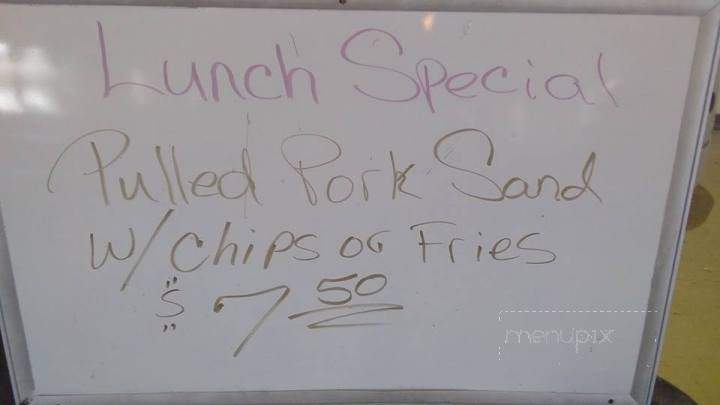 Lunch Special
Pulled Pork Sand
W/ Chips or Fries
$ 7 50
menupix